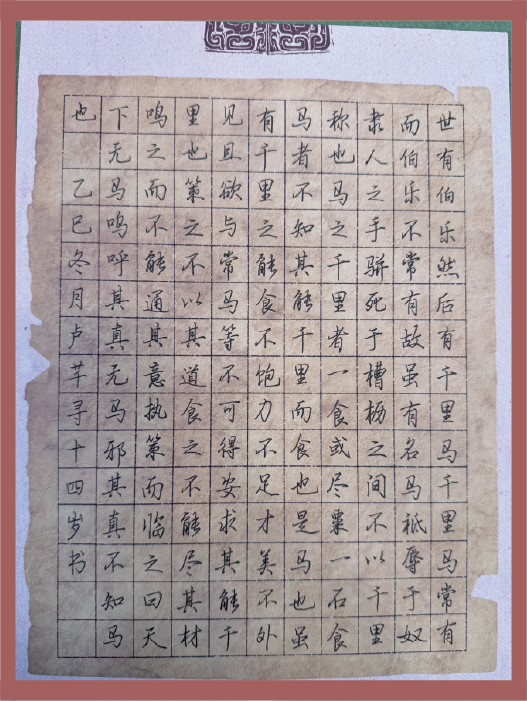 世有伯乐然后有千里马千里马常有
而伯乐不常有故虽有名马祗辱于奴
隶人之手骈死于槽枥之间不以千里
称也马之千里者一食或尽粟一石食
马者不知其能千里而食也是马也虽
有千里之能食不饱力不足才美不外
见且欲与常马等不可得安求其能千
里也策之不以其道食之不能尽其材
鸣之而不能通其意执策而临之曰天
下无马呜呼其真无马邪其真不知马
也 乙巳冬月卢芊寻十四岁书